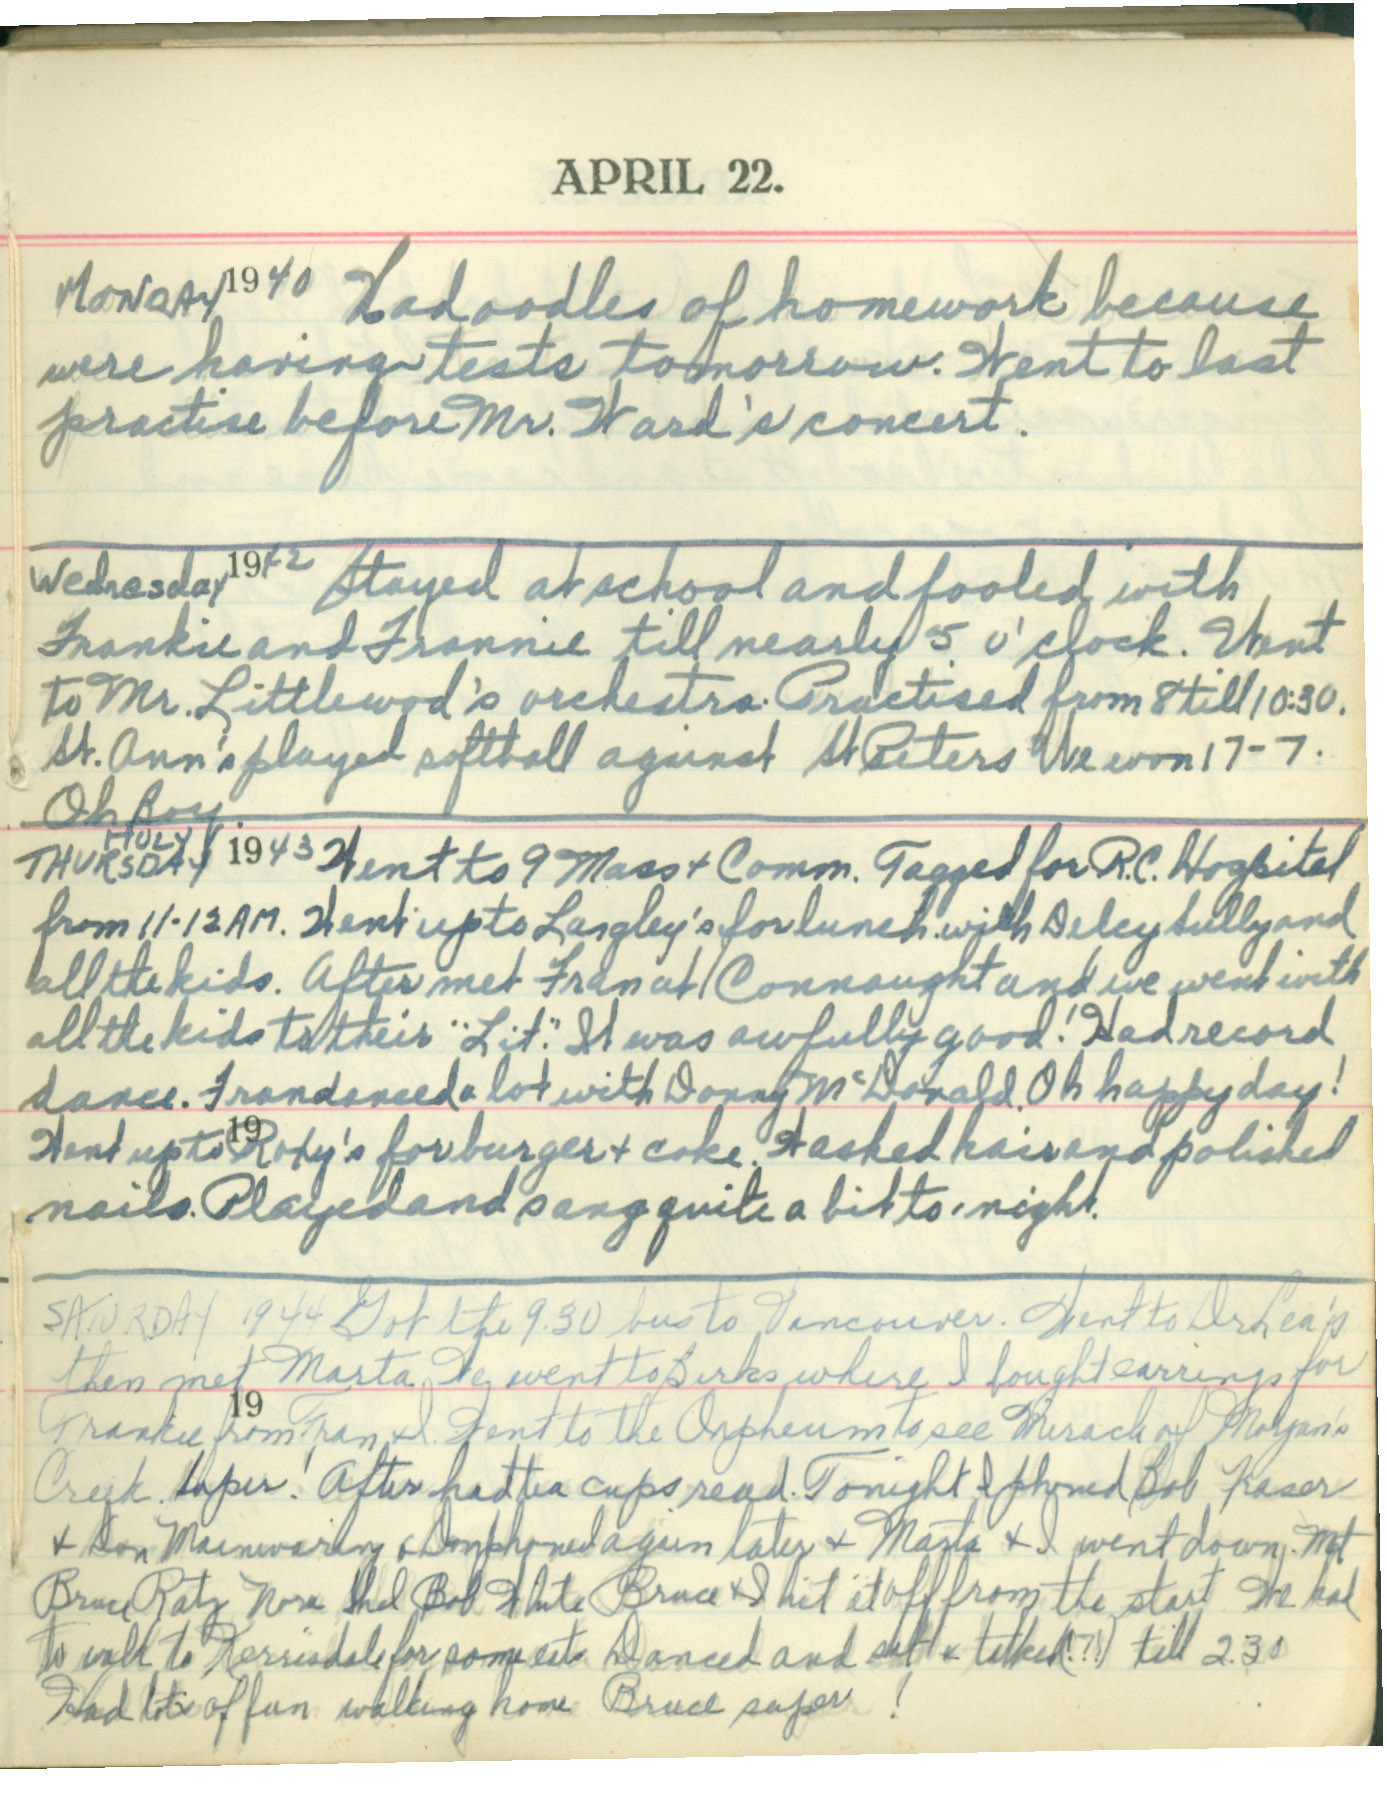 APRIL 22.
MONDAY 1940 Had oodles of homework because
were having tests tomorrow. Went to last
practise before Mr. Ward's concert.
Wednesday 1942 Stayed at school and fooled with
Frankie and Frannie till nearly 5 o'clock. Went
to Mr. Littlewod's orchestra. Practised from 8 till 10:30.
St. Ann's played softball against St Peters We won 17-7.
Oh Boy.
HOLY
THURSDAY 1943 Went to 9 Mass + Comm. Tagged for R.C. Hospital
from 11-12 AM. Went up to Langley's for lunch with Delcy Sully and
all the kids. After met Fran at Connaught and we went with
all the kids to their "Lit". It was awfully good! Had record
dance. Fran danced a lot with Donny McDonald. Oh happy day!
19
Went up to Roxy's for burger + coke. Washed hair and polished
nails. Played and sang quite a bit to-night.
SATURDAY 1944 Got the 9.30 bus to Vancouver. Went to Dr Lea's
then met Marta. We went to Birks where I bought earrings for
19
Frankie from Fran & I. Went to the Orpheum to see Miracle of Morgan's
Creek. Super! After had tea cups read. Tonight I phoned Bob Fraser
+ Don Mainwaring & Don phoned again later + Marta + I went down. Met
Bruce Ratz Nora Shel Bob White Bruce + I hit it off from the start We had
to walk to Kerrisdale for some eats Danced and sat & talked(!?!) till 2.30
Had lots of fun walking home Bruce super!